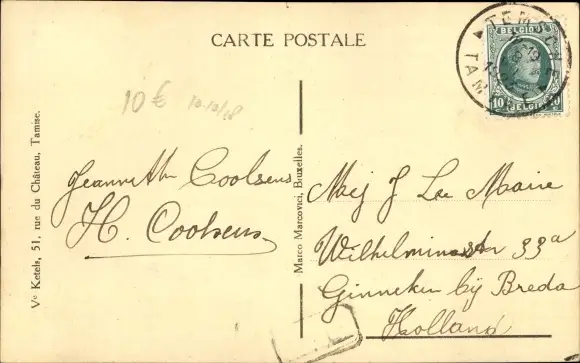 CARTE POSTALE
TEMSCHE
TAMISE
BELGIQUE
10 10
BELGIE
10 €
Vᵉ Ketels, 51, rue du Château, Tamise.
Jeanneth Coolsens
H. Coolsens
Marco Marcovici, Bruxelles.
Mej J La Maire
Wilhelminastr 33ª
Ginneken bij Breda
Holland